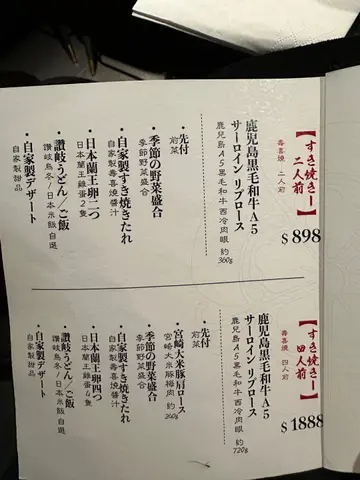 【すき焼きー二人前】
壽喜燒 二人前
$898
鹿児島黒毛和牛A5
サーロイン リブロース
鹿児島A5黒毛和牛西冷肉眼 約360g
・先付
前菜
・季節の野菜盛合
季節野菜盛合
・自家製すき焼きたれ
自家製壽喜燒醬汁
・日本蘭王卵二つ
日本蘭王雞蛋2隻
・讃岐うどん/ご飯
讚岐烏冬/日本米飯自選
・自家製デザート
自家製甜品
【すき焼きー四人前】
壽喜燒 四人前
$1888
鹿児島黒毛和牛A5
サーロイン リブロース
鹿児島A5黒毛和牛西冷肉眼 約720g
・先付
前菜
・宮崎大米豚肩ロース
宮崎大米豚梅肉 約240g
・季節の野菜盛合
季節野菜盛合
・自家製すき焼きたれ
自家製壽喜燒醬汁
・日本蘭王卵四つ
日本蘭王雞蛋4隻
・讃岐うどん/ご飯
讚岐烏冬/日本米飯自選
・自家製デザート
自家製甜品